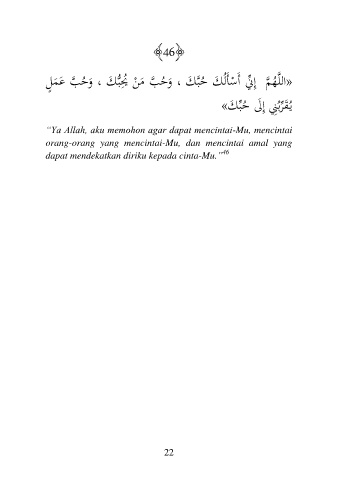 ﴿46﴾
«اللَّهُمَّ إِنِّي أَسْأَلُكَ حُبَّكَ ، وَحُبَّ مَنْ يُحِبُّكَ ، وَحُبَّ عَمَلٍ
يُقَرِّبُنِي إِلَى حُبِّكَ»
“Ya Allah, aku memohon agar dapat mencintai-Mu, mencintai
orang-orang yang mencintai-Mu, dan mencintai amal yang
dapat mendekatkan diriku kepada cinta-Mu.”46
22